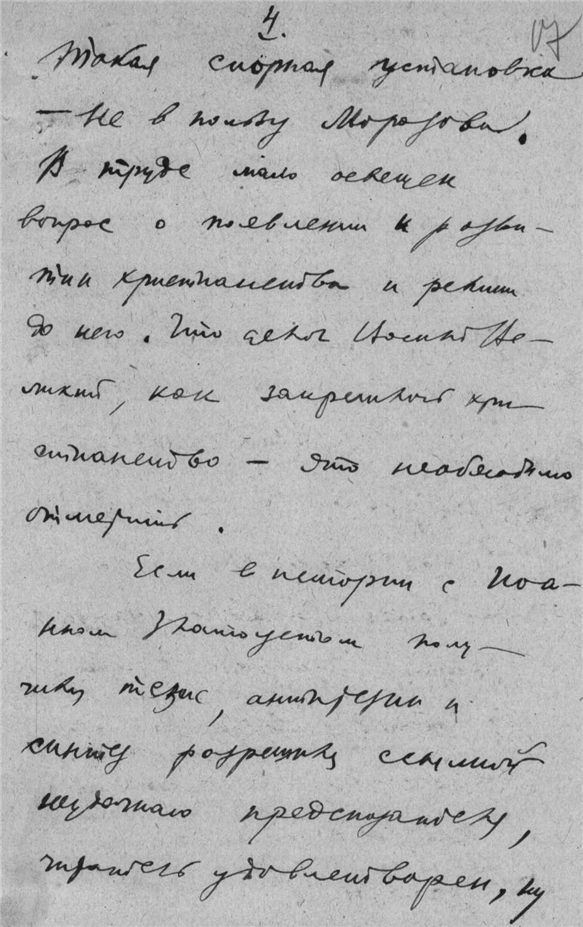 4.
17
Такая спорная установка
— не в пользу Морозова.
В труде мало освещен
вопрос о появлении и разви-
тии христианства и религии
до него. Что делал Ве-
ликий, как закрепил хри-
стианство — это необходимо
отметить.
Если в истории с Иоа-
нном Златоустом полу-
чили тезис, антитезис и
синтез ссылкой
неудачного предсказателя,
читатель удовлетворен, ну